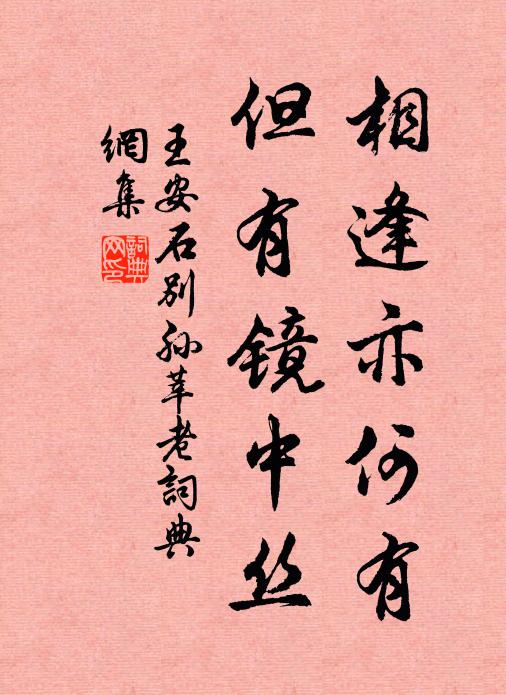 相逢亦何有
但有镜中丝
王安石别孙莘老詞典
網集
詞典
网印